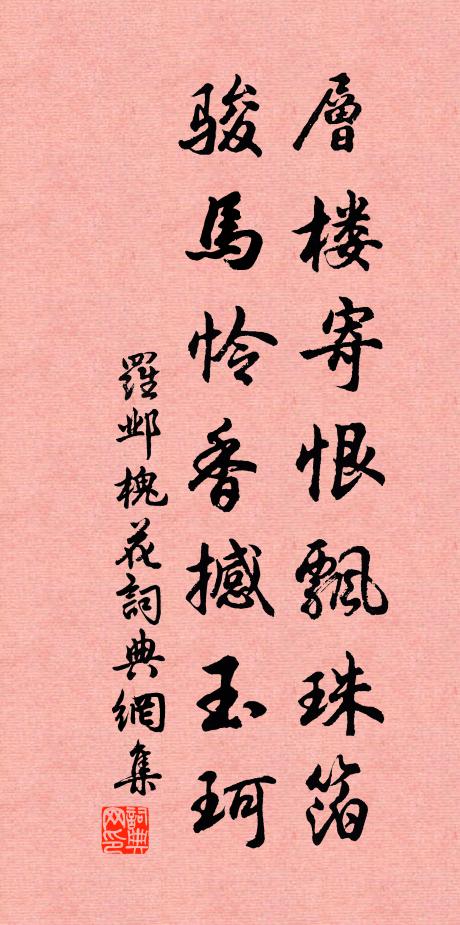 層楼寄恨飄珠箔
骏馬怜香撼玉珂
羅邺槐花詞典網集
詞典网印